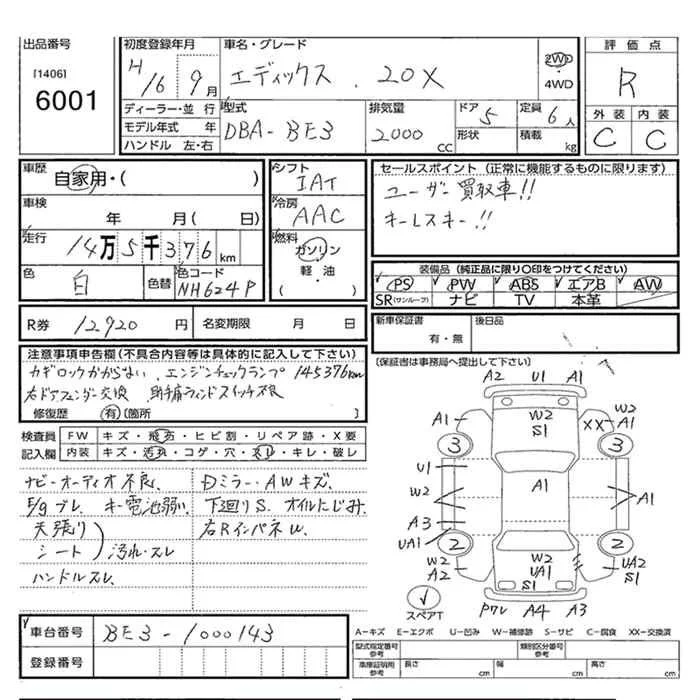 出品番号
[1406]
6001
初度登録年月
H16 9月
車名・グレード
エディックス . 20X
2WD
・
4WD
評価点
R
外装 内装
C C
ディーラー・並行
モデル年式 年
ハンドル 左・右
型式
DBA-BE3
排気量
2000 CC
ドア 5
形状
定員 6人
積載 kg
車歴
自家用・( )
車検
年 月( 日)
走行
14万5千376km
色 白
色替
色コード
NH624P
シフト
IAT
冷房
AAC
燃料
ガソリン
・
軽・油
( )
セールスポイント (正常に機能するものに限ります)
ユーザー買取車!!
キーレスキー!!
装備品 (純正品に限り○印をつけてください)
PS PW ABS エアB AW
SR(サンルーフ) ナビ TV 本革
R券 12920 円
名変期限 月 日
新車保証書
有・無
後日品
注意事項申告欄 (不具合内容等は具体的に記入して下さい)
カギロックかからない、エンジンチェックランプ 145376km
右ドアフェンダー交換 助手席ウィンドスイッチ不良
修復歴 有 (箇所 ]
(保証書は事務局へ提出して下さい)
検査員 FW キズ・飛石・ヒビ割・リペア跡・X要
記入欄 内装 キズ・汚れ・コゲ・穴・スレ・キレ・破レ
ナビ・オーディオ不良、 Dミラー・AWキズ、
E/gブレ、キー電池弱い、 下廻りS、オイルにじみ、
天張り 右RインパネW、
シート ) 汚れ・スレ
ハンドルスレ、
A2 U1 A1
A1 W2 S1 XX W2 A1
3 3
U1
W2 A1 A1
A3
UA1
2 2
W2 A2 W2 UA1 S1 UA2 S1
スペアT
Pワレ A4 A3
車台番号 BE3-1000143
登録番号
A-キズ E-エクボ U-凹み W-補修跡 S-サビ C-腐食 XX-交換済
型式指定番号 参考
類別区分番号 参考
車庫証明用 参考
長さ cm
幅 cm
高さ cm